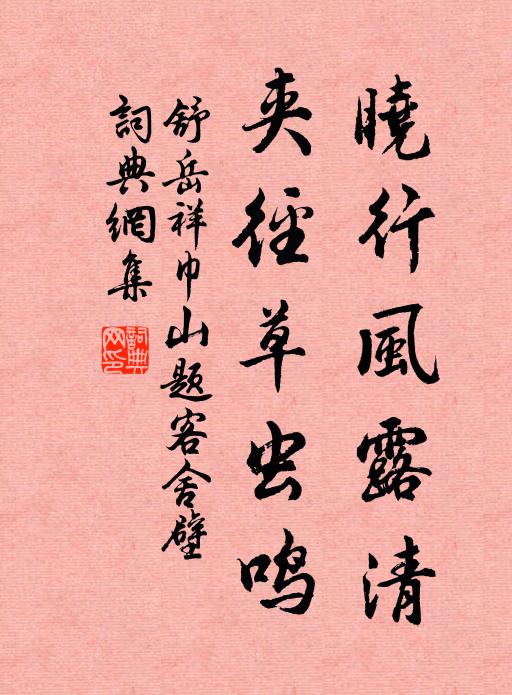 曉行風露清
夾徑草虫鳴
舒岳祥巾山題客舍壁
詞典網集
詞典網印